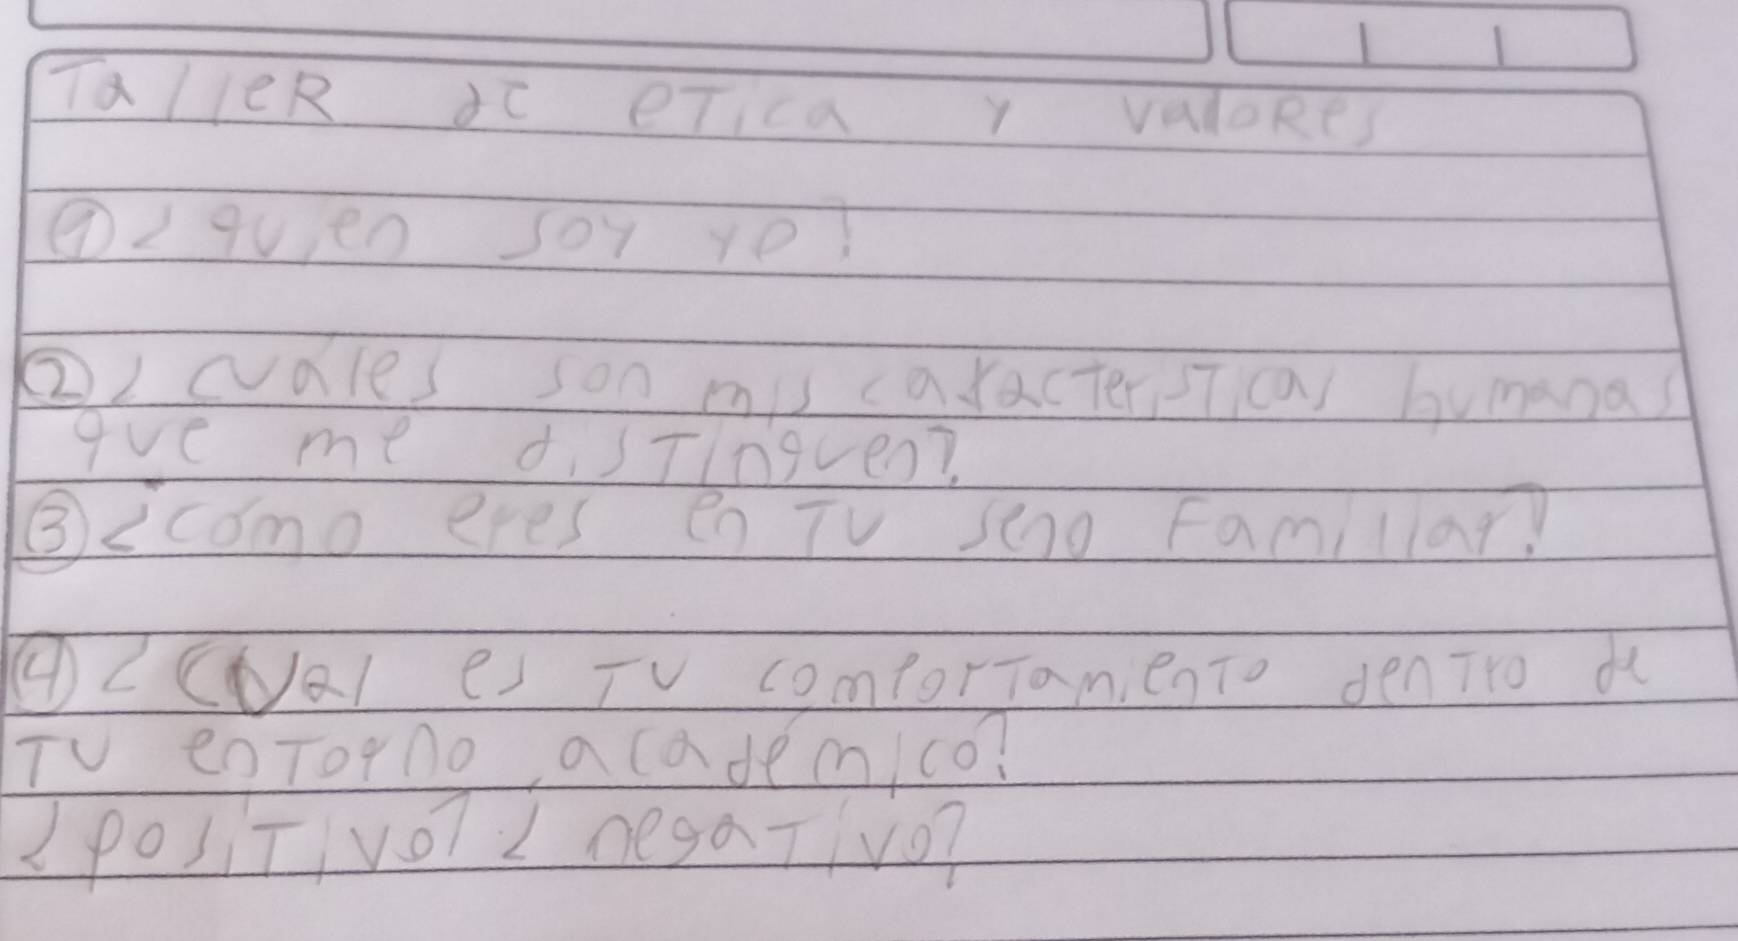 Taller de etica y valores
① ¿quien soy yo?
② ¿cuales son mis caracteristicas humanas
que me distinguen?
③ ¿cómo eres en tu seno familiar?
④ ¿cual es tu comportamiento dentro de
tu entorno academico?
¿positivo? ¿negativo?